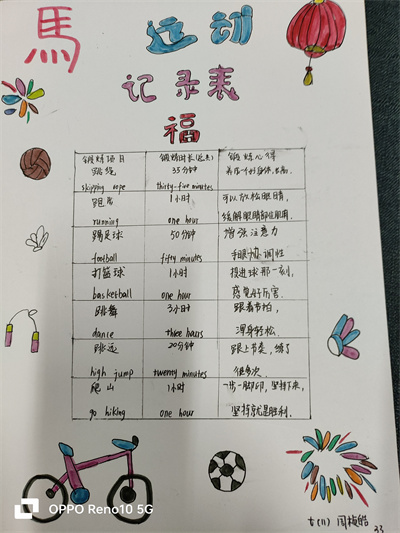 馬 运动
记录表
福
锻炼项目 锻炼时长(近三) 锻炼心得
跳绳 35分钟
skipping rope thirty-five minutes
跑步 1小时 可以放松眼睛,
running one hour 缓解眼睛部位肌肉.
踢足球 50分钟 增强注意力
football fifty minutes 手眼协调性
打篮球 1小时 投进球那一刻,
basketball one hour 感觉好厉害.
跳舞 3小时 跟着节拍,
dance three hours 浑身轻松.
跳远 20分钟 跟上节奏,练了
high jump twenty minutes 很多次.
爬山 1小时 一步一脚印,坚持下来,
go hiking one hour 坚持就是胜利.
OPPO Reno10 5G
33